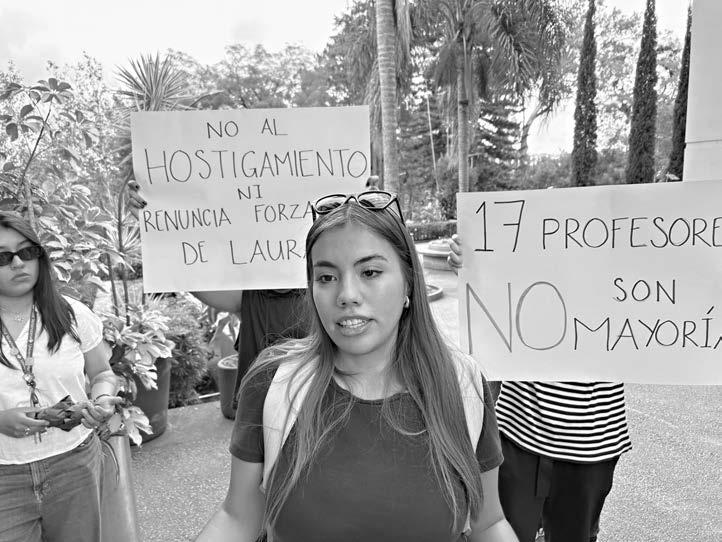 NO AL
HOSTIGAMIENTO
NI
RENUNCIA FORZA
DE LAURA
17 PROFESORE
NO SON
MAYORÍA